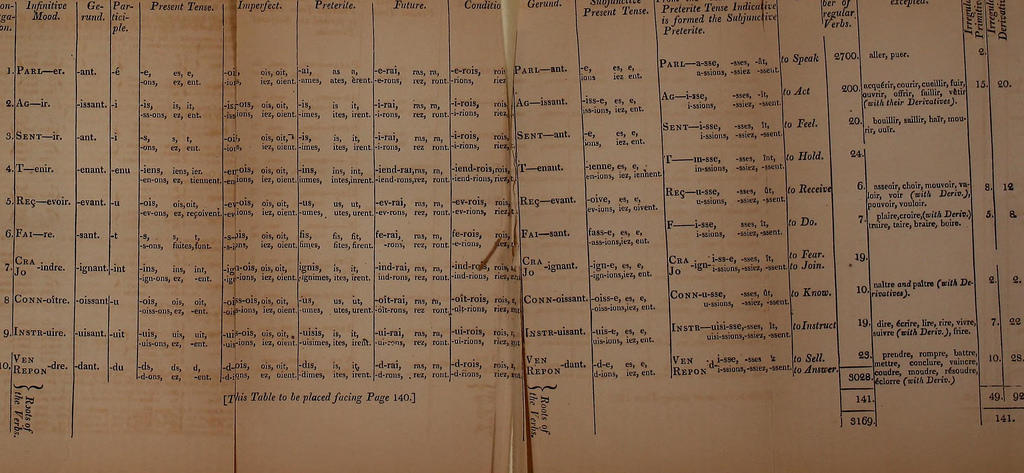 Infinitive Mood. Gerund. Participle. Present Tense. Imperfect. Preterite. Future. Gerund. Subjunctive Present Tense. Preterite Tense Indicative is formed the Subjunctive Preterite. regular Verbs. excepted.
1. PARL—er. -ant. -é -e, es, e, ois, oit, -ai, as a, -e-rai, ras, ra, -e-rois, PARL—ant. -e, es, e, PARL—a-sse, -sses, -ât, to Speak 2700. aller, puer. 2
-ons, ez, ent. iez, oient. -ames, ates, èrent. -e-rons, rez, ront. -e-rions, riez, ions iez ent. a-ssions, -ssiez -ssent.
2. AG—ir. -issant. -i -is, is, it, ois, oit, -is, is it, -i-rai, ras, ra, -i-rois, AG—issant. -iss-e, es, e, AG—i-sse, -sses, -ît, to Act 200. acquérir, courir, cueillir, fuir, ouvrir, offrir, faillir, vêtir (with their Derivatives). 15. 20.
-ss-ons, ez, ent. iez, oient. -imes, ites, irent. -i-rons, rez ront. -i-rions, riez, iez, ent. i-ssions, -ssiez, -ssent.
3. SENT—ir. -ant. -i -s, s, t, ois, oit, -is, is, it, -i-rai, ras, ra, -i-rois, SENT—ant. -e, es, e, SENT—i-sse, -sses, ît, to Feel. 20. bouillir, saillir, haïr, mourir, ouïr.
-ons, ez, ent. iez, oient. -imes, ites, irent. -i-rons, rez ront. -i-rions, riez, ions, iez, ent. i-ssions, -ssiez, -ssent.
4. T—enir. -enant. -enu -iens, iens, ient. ois, oit, -ins, ins, int, -iend-rai, ras, ra, -iend-rois, T—enant. -ienne, es, e, T—in-sse, -sses, înt, to Hold. 24.
-en-ons, ez, tiennent. iez, oient. inmes, intes, inrent. -iend-rons, rez, ront. -iend-rions, riez, en-ions, iez, iennent in-ssions, -ssiez, -ssent.
5. REÇ—evoir. -evant. -u -ois, ois, oit, ois, oit, -us, us, ut, -ev-rai, ras, ra, -ev-rois, REÇ—evant. -oive, es, e, REÇ—u-sse, -sses, ût, to Receive 6. asseoir, choir, mouvoir, valoir, voir (with Deriv.), pouvoir, vouloir. 8. 12
-ev-ons, ez, reçoivent. iez, oient. -umes, utes, urent. -ev-rons, rez, ront. -ev-rions, riez, ev-ions, iez, oivent. u-ssions, -ssiez, -ssent.
6. FAI—re. -sant. -t -s, s, t, ois, oit, fis, fis, fit, fe-rai, ras, ra, fe-rois, FAI—sant. fass-e, es, e, F—i-sse, -sses, ît, to Do. 7. plaire, croire, (with Deriv.) traire, taire, braire, boire. 5. 8.
-s-ons, faites, font. iez, oient. fimes, fites, firent. -rons, rez, ront. -e-rions, riez, -ass-ions, iez, ent. i-ssions, -ssiez, -ssent.
7. CRA JO -indre. -ignant. -int -ins, ins, int, ois, oit, ignis, is, it, -ind-rai, ras, ra, -ind-rois, CRA JO -ignant. -ign-e, es, e, CRA JO -ign- i-ss-e, -sses, ît, to Fear. to Join. 19.
-ign-ons, ez, ent. iez, oient. -ignimes, ites, irent. ind-rons, rez, ront. -ind-rions, riez, -ign-ions, iez, ent. i-ssions, -ssiez, -ssent.
8 CONN-oître. -oissant -u -ois, ois, oit, ois, oit, -us, us, ut, -oît-rai, ras, ra, -oît-rois, CONN-oissant. -oiss-e, es, e, CONN-u-sse, -sses, ût, to Know. 10. naître and paître (with Derivatives). 2. 2.
-oiss-ons, ez, ent. iez, oient. -umes, utes, urent. -oît-rons, rez, ront. -oît-rions, riez, -oiss-ions, iez, ent. u-ssions, -ssiez, -ssent.
9. INSTR-uire. -uisant. -uit -uis, uis, uit, ois, oit, -uisis, is, it, -ui-rai, ras, ra, -ui-rois, INSTR-uisant. -uis-e, es, e, INSTR—uisi-sse, -sses, ît, to Instruct 19. dire, écrire, lire, rire, vivre, suivre (with Deriv.), frire. 7. 22
-uis-ons, ez, -ent. iez, oient. -uisimes, ites, irent. -ui-rons, rez, ront. -ui-rions, riez, uis-ions, iez, ent. i-ssions, -ssiez, -ssent.
10. VEN REPON -dre. -dant. -du -ds, ds, d, ois, oit, -dis, is, it, -d-rai, ras, ra, -d-rois, VEN REPON -dant. -d-e, es, e, VEN REPON -d i-sse, -sses to Sell. to Answer. 23. prendre, rompre, battre, mettre, conclure, vaincre, coudre, moudre, résoudre, éclorre (with Deriv.) 10. 28.
-d-ons, ez, -ent. iez, oient. -dimes, ites, irent. -d-rons, rez, ront. -d-rions, riez, d-ions, iez, ent. i-ssions, -ssiez, -ssent.
3028.
Roots of the Verbs. [This Table to be placed facing Page 140.] Roots of the Verbs. 141. 49. 92
3169. 141.